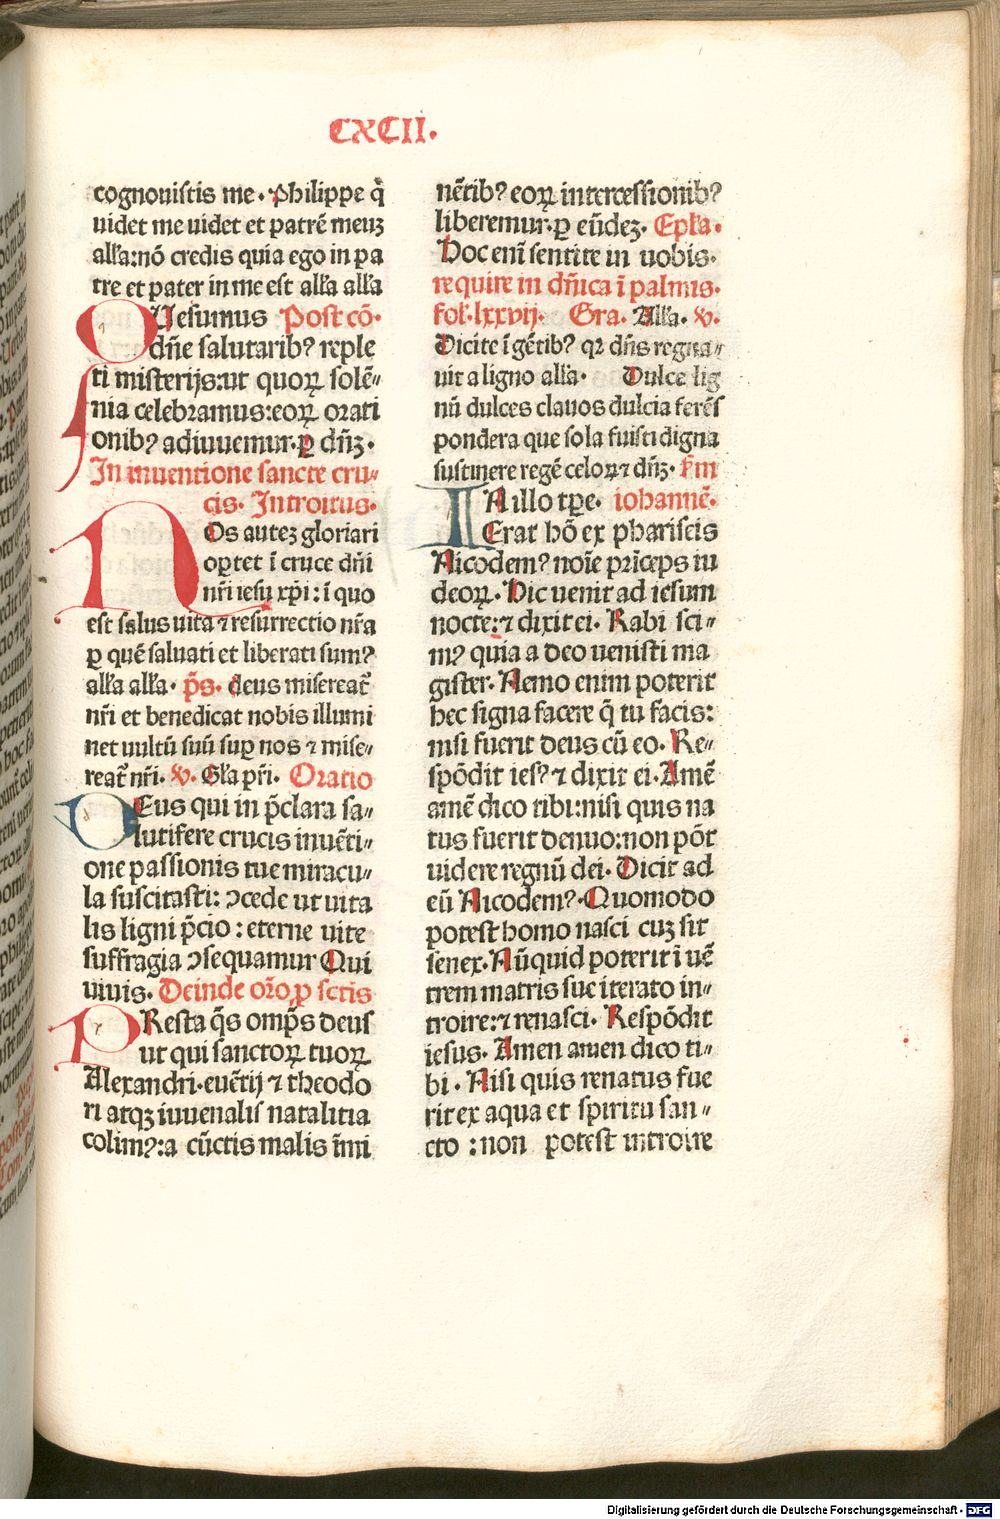 CXCII.
cognouistis me. philippe q̄
uidet me uidet et patrē meuz
alľa:nō credis quia ego in pa
tre et pater in me est alľa alľa
QVesumus Post cō.
dñe salutarib? reple
ti misterijs:ut quoꝝ solē⸗
nia celebramus:eoꝝ orati
onib? adiuuemur.ꝑ dñꝫ.
In inuentione sancte cru⸗
cis. Introitus.
NOs autez gloriari
oportet ī cruce dñi
nr̄i iesu xp̄i: ī quo
est salus uita ⁊ resurrectio nr̄a
ꝑ quē saluati et liberati sum?
alľa alľa. p̄s. deus misereat̄
nr̄i et benedicat nobis illumi
net uultū suū suꝑ nos ⁊ mise⸗
reat̄ nr̄i. v. Gľa pr̄i. Oratio
DEus qui in p̄clara sa⸗
lutifere crucis inuēti⸗
one passionis tue miracu⸗
la suscitasti: ɔcede ut uita
lis ligni p̄cio: eterne uite
suffragia ɔsequamur Qui
uiuis. Deinde or̄o ꝑ sctis
PResta q̄s omp̄s deus
ut qui sanctoꝝ tuoꝝ
Alexandri.euētij ⁊ theodo
ri atqꝫ iuuenalis natalitia
colim?:a cūctis malis īmi
nētib? eoꝝ intercessionib?
liberemur.ꝑ eūdeꝫ. Epľa.
Hoc eni sentite in uobis.
require in dñica ī palmis.
fol.lxxvij. Gra. Alľa. v.
Dicite ī gētib? qꝛ dñs regna⸗
uit a ligno alľa. Dulce lig
nū dulces clauos dulcia ferēs
pondera que sola fuisti digna
sustinere regē celoꝝ ⁊ dñꝫ. fm
IN illo tꝑe. iohannē.
Erat hō ex phariseis
Nicodem? noīe prīceps iu
deoꝝ. Hic uenit ad iesum
nocte:⁊ dixit ei. Rabi sci⸗
m? quia a deo uenisti ma
gister. Nemo enim poterit
hec signa facere q̄ tu facis:
nisi fuerit deus cū eo. Re⸗
spōdit ies? ⁊ dixit ei. Amē
amē dico tibi:nisi quis na
tus fuerit denuo:non pōt
uidere regnū dei. Dicit ad
eū Nicodem?. Quomodo
potest homo nasci cuꝫ sit
senex. Nūquid poterit ī uē
trem matris sue iterato in⸗
troire:⁊ renasci. Respōdit
iesus. Amen amen dico ti⸗
bi. Nisi quis renatus fue
rit ex aqua et spiritu san⸗
cto: non potest introire
Digitalisierung gefördert durch die Deutsche Forschungsgemeinschaft - DFG